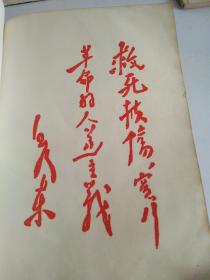 救死扶傷，实行
革命的人道主義
毛泽东